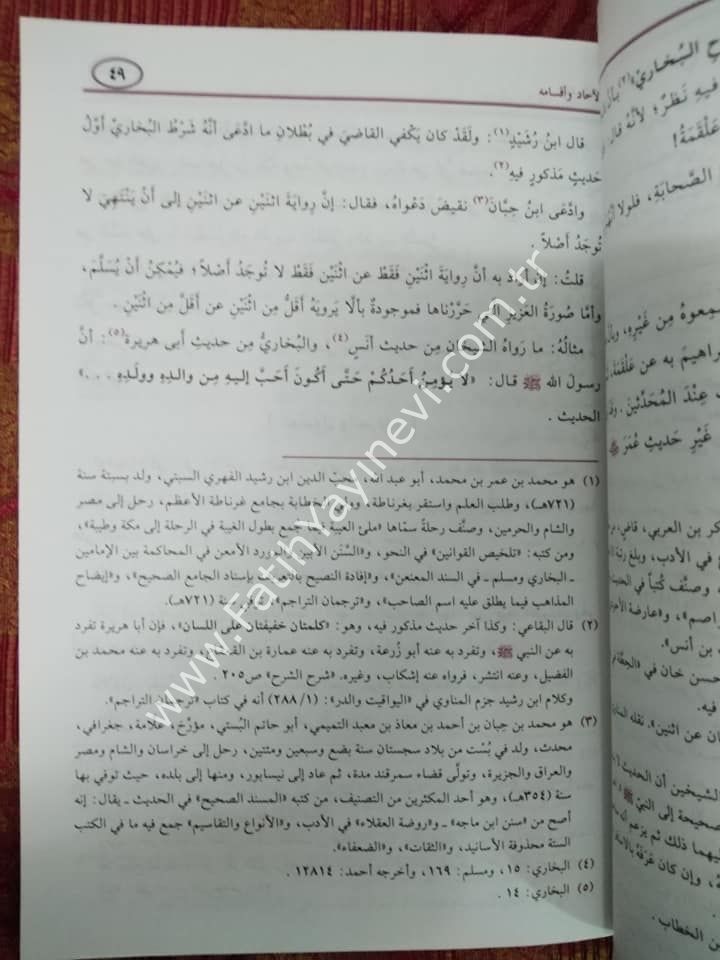 ٤٩
لآحاد وأقسامه
قال ابنُ رُشَيْدٍ(١): ولَقَدْ كان يَكْفي القاضيَ في بُطْلانِ ما ادَّعى أنَّهُ شَرْطُ البُخاريِّ أوَّلُ
حَديثٍ مَذكورٍ فيهِ(٢).
وادَّعى ابنُ حِبَّانَ(٣) نَقيضَ دَعْواهُ، فقال: إنَّ رِوايَةَ اثْنَيْنِ عن اثْنَيْنِ إلى أنْ يَنْتَهِيَ لا
تُوجَدُ أصْلاً.
قلتُ: إنْ أرادَ به أنَّ رِوايَةَ اثْنَيْنِ فَقَطْ عن اثْنَيْنِ فَقَطْ لا تُوجَدُ أصْلاً؛ فيُمْكِنُ أنْ يُسَلَّمَ،
وأمَّا صُورَةُ العَزيزِ الَّتي حَرَّرْناها فموجودةٌ بألَّا يَرويَهُ أقَلُّ مِن اثْنَيْنِ عن أقَلَّ مِن اثْنَيْنِ.
مثالُهُ: ما رَواهُ الشَّيخانِ مِن حديثِ أنَسٍ(٤)، والبُخاريُّ مِن حديثِ أبي هريرةَ(٥): أنَّ
رسولَ الله ﷺ قال: «لا يُؤمِنُ أحَدُكُمْ حَتَّى أكُونَ أحَبَّ إليهِ مِن والدِهِ وولَدِهِ...»
الحديث.
(١) هو محمد بن عمر بن محمد، أبو عبد الله، محب الدين ابن رشيد الفهري السبتي، ولد بسبتة سنة
(٧٢١هـ)، وطلب العلم واستقر بغرناطة، وولي الخطابة بجامع غرناطة الأعظم، رحل إلى مصر
والشام والحرمين، وصنَّف رحلةً سمّاها «ملئ العيبة فيما جُمع بطول الغيبة في الرحلة إلى مكة وطيبة»،
ومن كتبه: «تلخيص القوانين» في النحو، و«السَّنن الأبين والمورد الأمعن في المحاكمة بين الإمامين
ـ البخاري ومسلم ـ في السند المعنعن»، و«إفادة النصيح بالتعريف بإسناد الجامع الصحيح»، و«إيضاح
المذاهب فيما يطلق عليه اسم الصاحب»، و«ترجمان التراجم»، توفي سنة (٧٢١هـ).
(٢) قال البقاعي: وكذا آخر حديث مذكور فيه، وهو: «كلمتان خفيفتان على اللسان»، فإن أبا هريرة تفرد
به عن النبي ﷺ، وتفرد به عنه أبو زُرعة، وتفرد به عنه عمارة بن القعقاع، وتفرد به عنه محمد بن
الفضيل، وعنه انتشر، فرواه عنه إشكاب، وغيره. «شرح الشرح» ص٢٠٥.
وكلام ابن رشيد جزم المناوي في «اليواقيت والدرر»: (١/ ٢٨٨) أنه في كتاب «ترجمان التراجم».
(٣) هو محمد بن حِبان بن أحمد بن معاذ بن معبد التميمي، أبو حاتم البُستي، مؤرِّخ، علامة، جغرافي،
محدث، ولد في بُسْت من بلاد سجستان سنة بضع وسبعين ومئتين، رحل إلى خراسان والشام ومصر
والعراق والجزيرة، وتولَّى قضاء سمرقند مدة، ثم عاد إلى نيسابور، ومنها إلى بلده، حيث توفي بها
سنة (٣٥٤هـ)، وهو أحد المكثرين من التصنيف، من كتبه «المسند الصحيح» في الحديث ـ يقال: إنه
أصح من «سنن ابن ماجه» ـ و«روضة العقلاء» في الأدب، و«الأنواع والتقاسيم» جمع فيه ما في الكتب
الستة محذوفة الأسانيد، و«الثقات»، و«الضعفاء».
(٤) البخاري: ١٥، ومسلم: ١٦٩، وأخرجه أحمد: ١٢٨١٤.
(٥) البخاري: ١٤.
البُخاريِّ»(٢)
فيهِ نَظَرٌ؛ لأنَّهُ قال:
عَلْقَمَةُ!
الصَّحابَةِ، فلولا
مِن غَيْرِهِ،
به عن عَلْقَمَةَ
عِنْدَ المُحَدِّثينَ.
غَيْرِ حَديثِ عُمَرَ
بن العربي، قاضٍ،
في الأدب، وبلغ رتبة
وصنَّف كُتباً في
بن أنس».
حسن خان في
فيه.
عن اثنين». نقله
الشيخين أن الحديث
إلى النبي ﷺ
ذلك ثم يزعم أن
وإن كان
بن الخطاب.
www.FatihYayinevi.com.tr